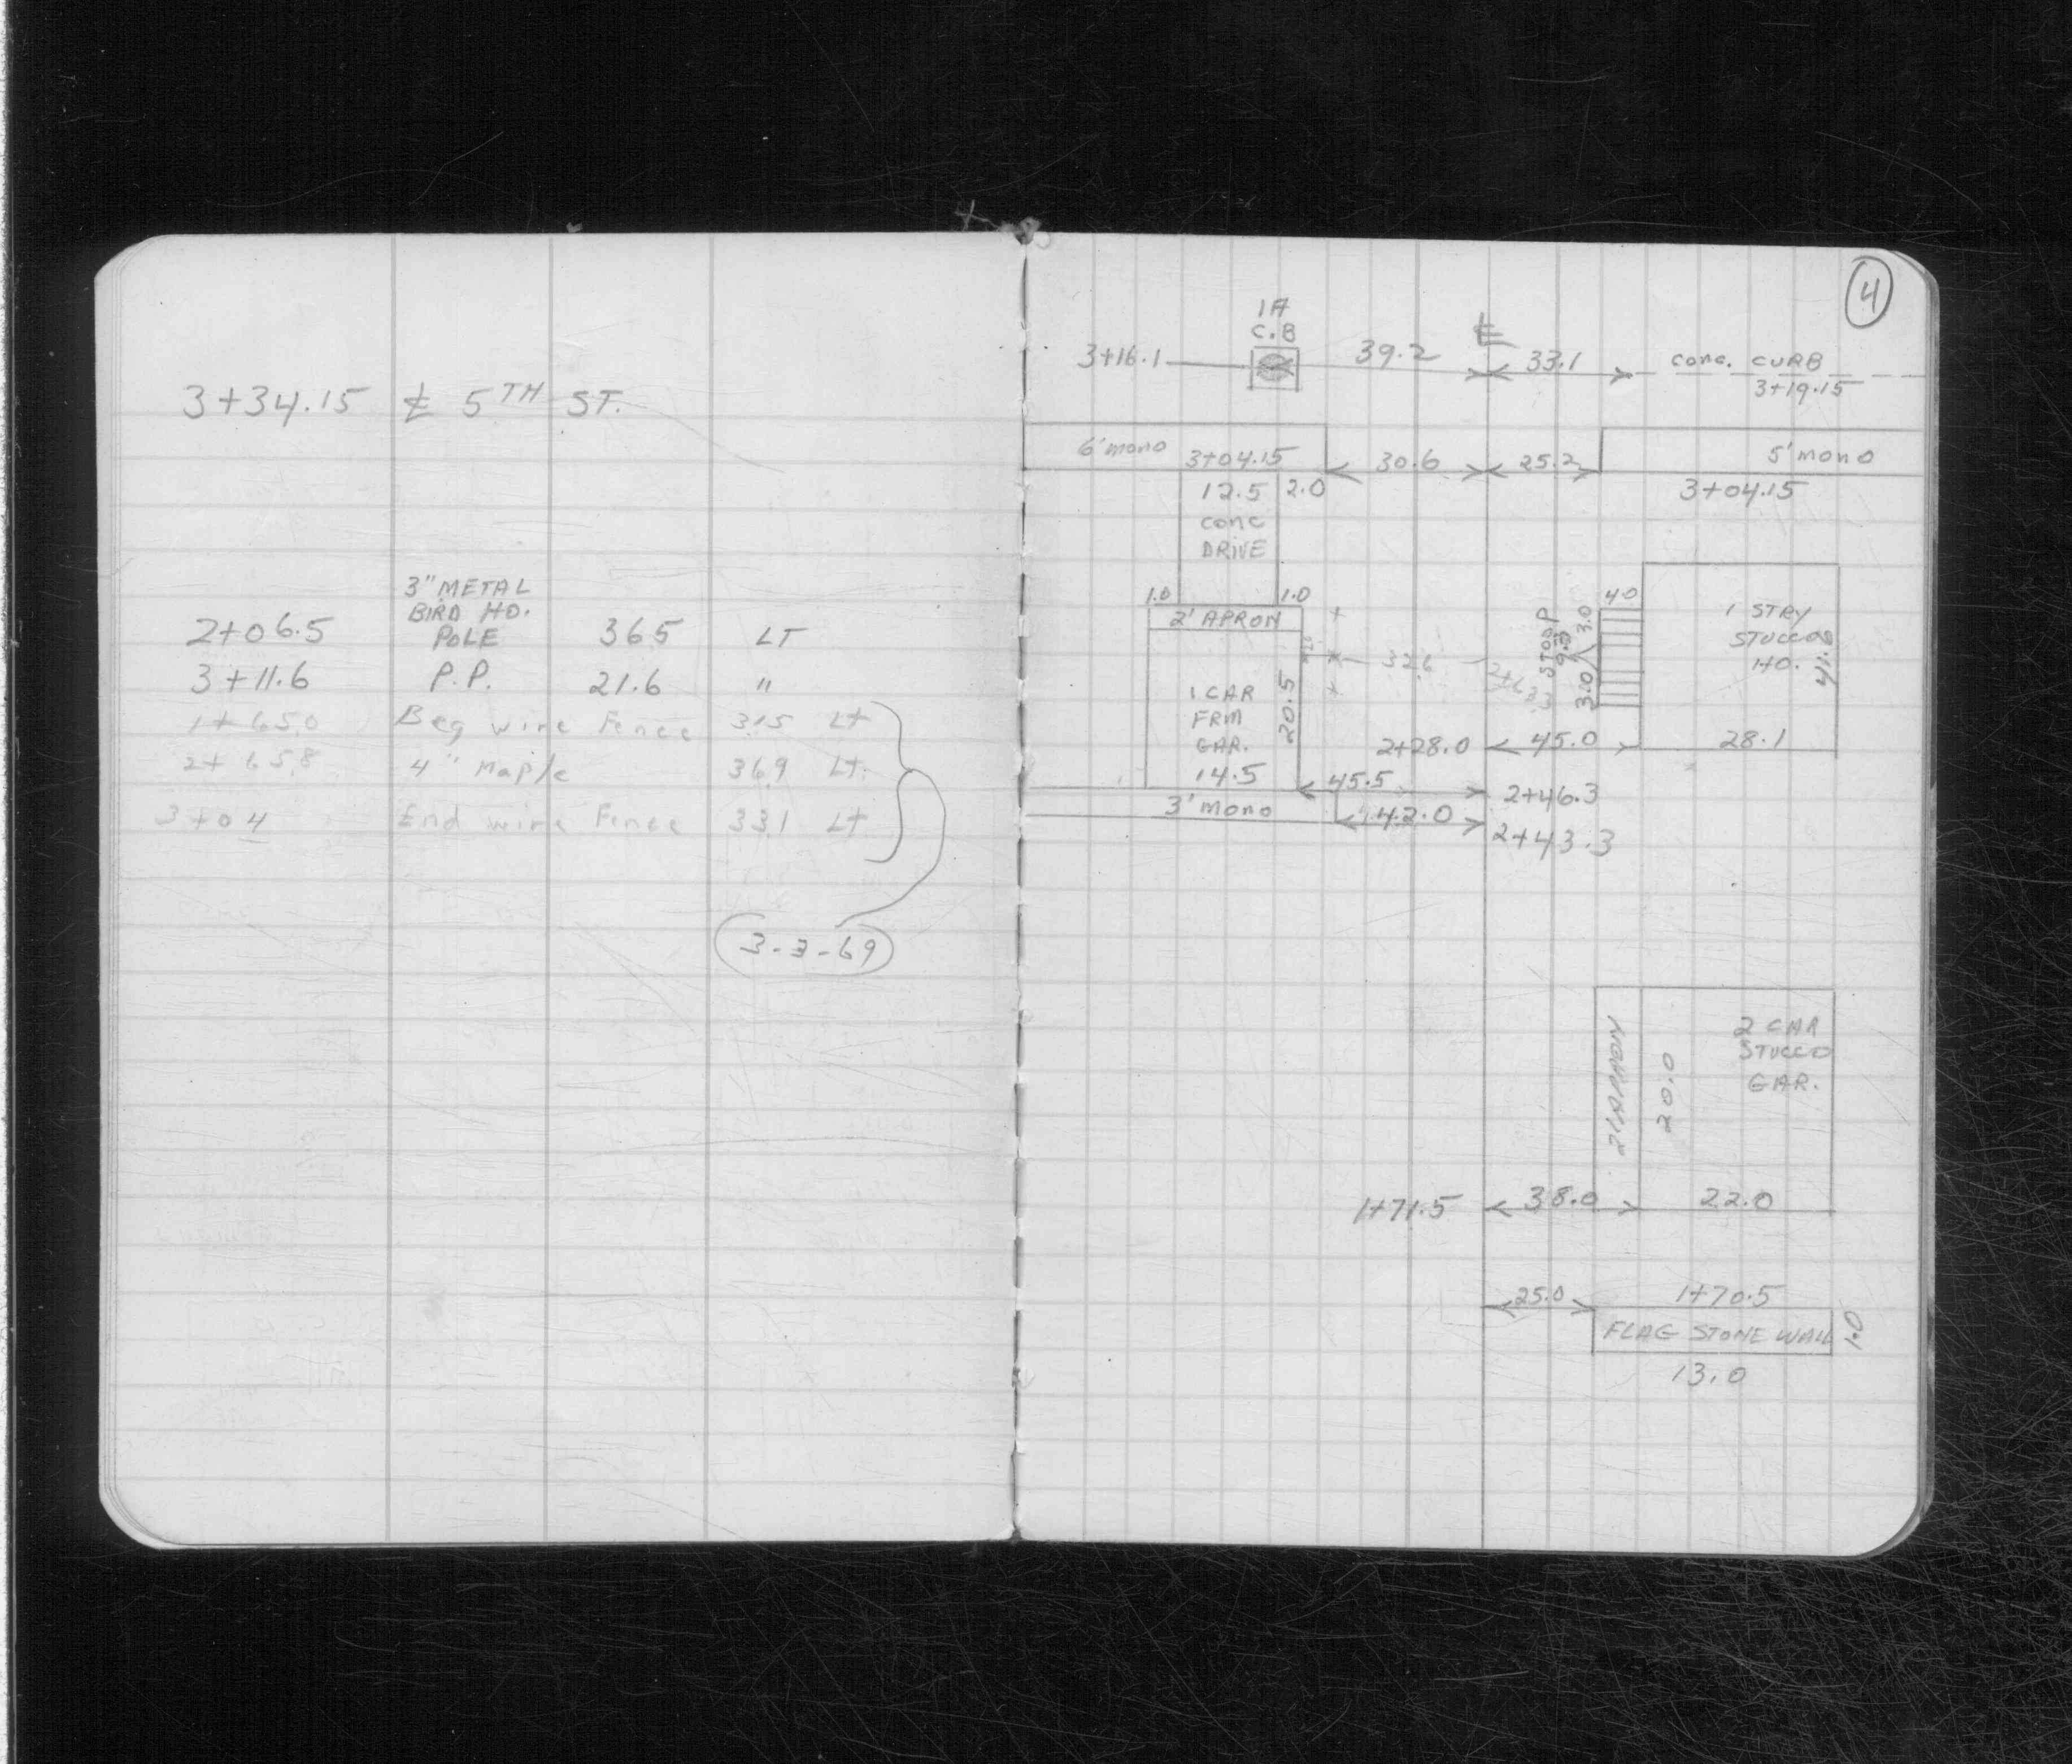 3+34.15 ℄ 5TH ST.
3" METAL
BIRD HO.
2+06.5 POLE 36.5 LT
3+11.6 P.P. 21.6 "
1+65.0 Beg wire Fence 31.5 Lt
2+65.8 4" Maple 36.9 Lt.
3+04 End wire Fence 33.1 Lt
3-3-69
4
1A
C.B
℄
3+16.1 39.2 33.1 conc. CURB
3+19.15
6' mono 3+04.15 30.6 25.2 5' mono
12.5 2.0 3+04.15
conc
DRIVE
1.0 1.0 4.0
2' APRON
STOOP
9.5
3.0
3.0
1 STRY
STUCCO
HO.
41.8
32.6
1 CAR
FRM
GAR.
20.5
14.5
2+28.0 45.0 28.1
45.5 2+46.3
3' mono 42.0 2+43.3
2 CAR
STUCCO
GAR.
20.0
1+71.5 38.0 22.0
25.0 1+70.5
FLAG STONE WALL 1.0
13.0